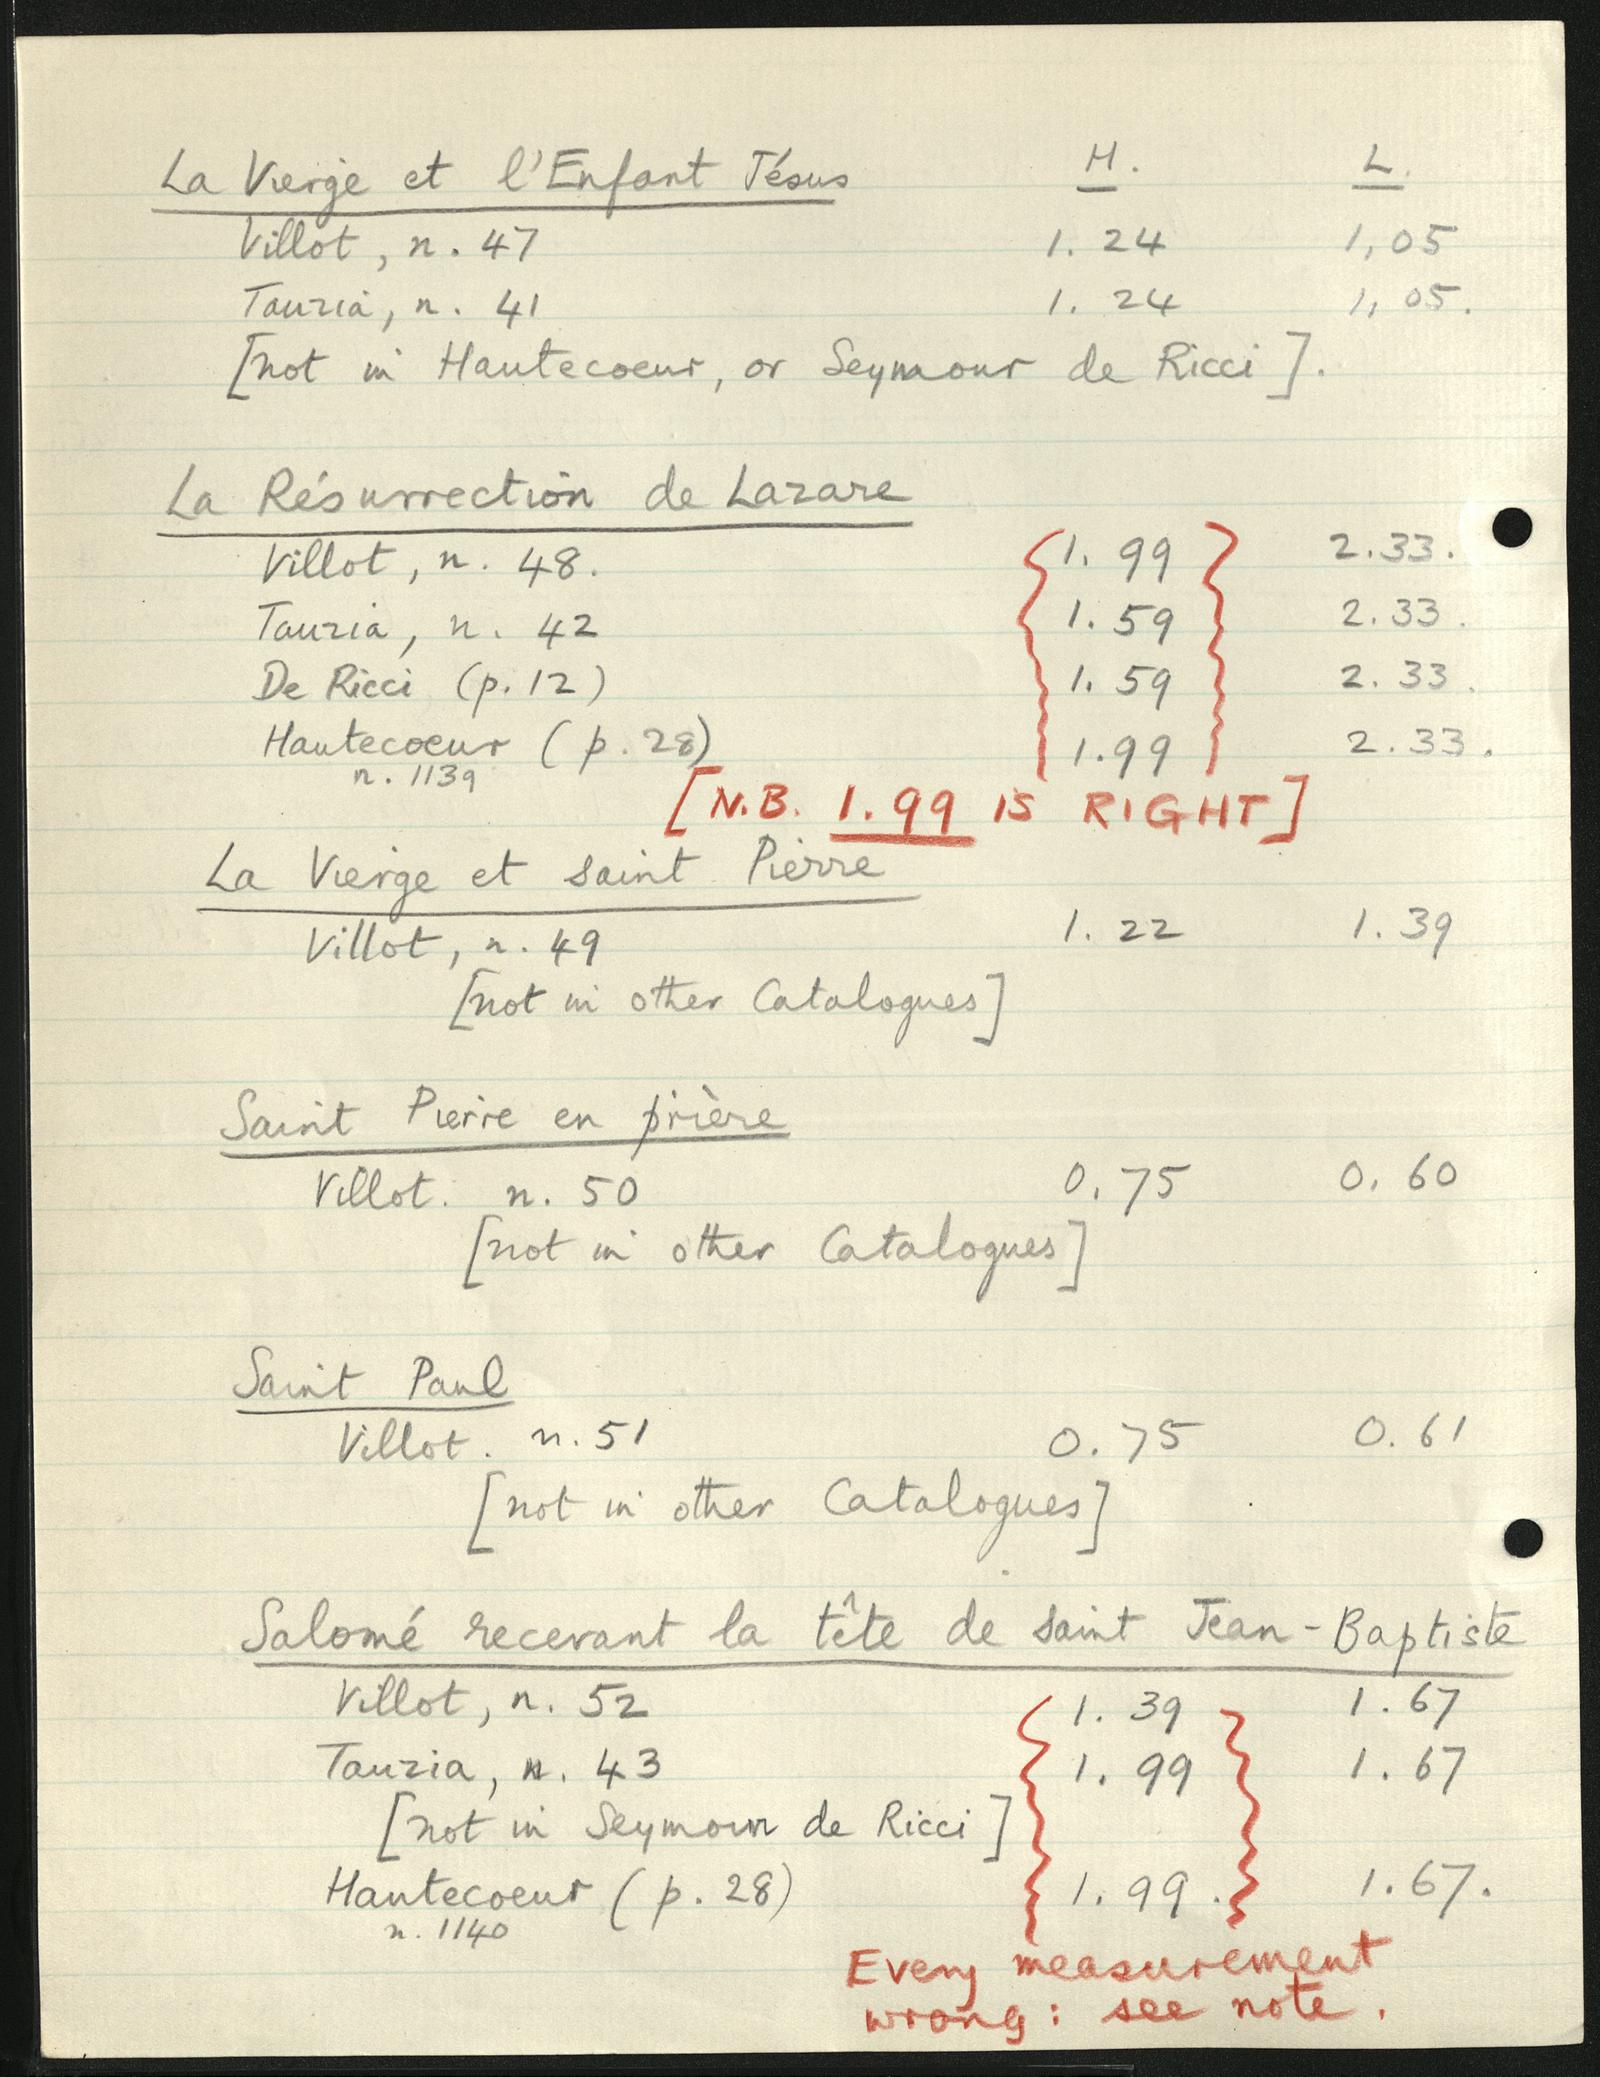 La Vierge et l'Enfant Jésus H. L.
Villot, n. 47 1. 24 1,05
Tauzia, n. 41 1. 24 1,05.
[not in Hautecoeur, or Seymour de Ricci].
La Résurrection de Lazare
Villot, n. 48. 1. 99 2.33.
Tauzia, n. 42 1. 59 2.33.
De Ricci (p. 12) 1. 59 2. 33.
Hautecoeur (p. 28) 1.99 2.33.
n. 1139
[N.B. 1.99 IS RIGHT]
La Vierge et saint Pierre
Villot, n. 49 1. 22 1. 39
[not in other Catalogues]
Saint Pierre en prière
Villot. n. 50 0.75 0. 60
[not in other Catalogues]
Saint Paul
Villot. n. 51 0. 75 0. 61
[not in other Catalogues]
Salomé recevant la tête de saint Jean-Baptiste
Villot, n. 52 1. 39 1. 67
Tauzia, n. 43 1. 99 1. 67
[not in Seymour de Ricci]
Hautecoeur (p. 28) 1. 99. 1.67.
n. 1140
Every measurement
wrong: see note.